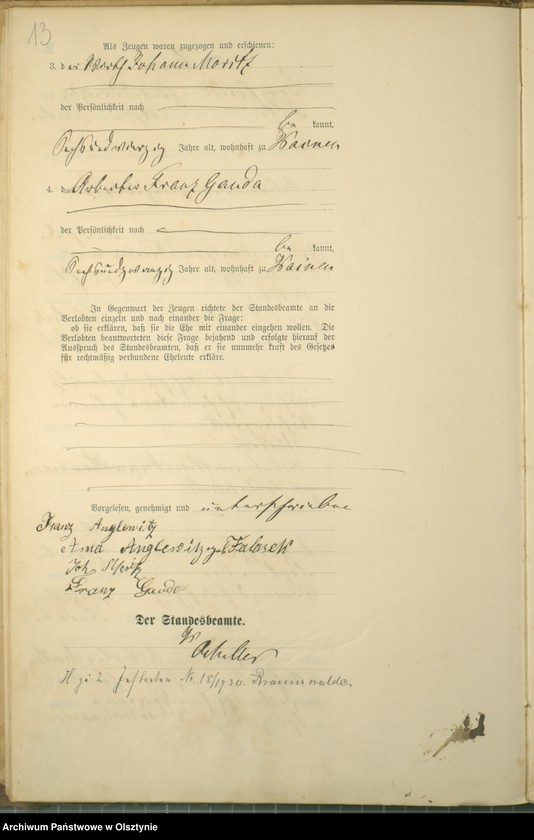 13
Als Zeugen waren zugezogen und erschienen:
3. der Wirth Johann Moritz
der Persönlichkeit nach
be kannt,
Sechsundvierzig Jahre alt, wohnhaft zu
4. der Arbeiter Franz Ganda
der Persönlichkeit nach
be kannt,
Sechsundzwanzig Jahre alt, wohnhaft zu
In Gegenwart der Zeugen richtete der Standesbeamte an die
Verlobten einzeln und nach einander die Frage:
ob sie erklären, daß sie die Ehe mit einander eingehen wollen. Die
Verlobten beantworteten diese Frage bejahend und erfolgte hierauf der
Ausspruch des Standesbeamten, daß er sie nunmehr kraft des Gesetzes
für rechtmäßig verbundene Eheleute erkläre.
Vorgelesen, genehmigt und unterschrieben
Franz Anglewitz
Anna Anglewitz Falosek
Joh Moritz
Franz Ganda
Der Standesbeamte.
Schiller
H zu 2. gestorben Nr. 18/1930. Braunswalde.
Archiwum Państwowe w Olsztynie